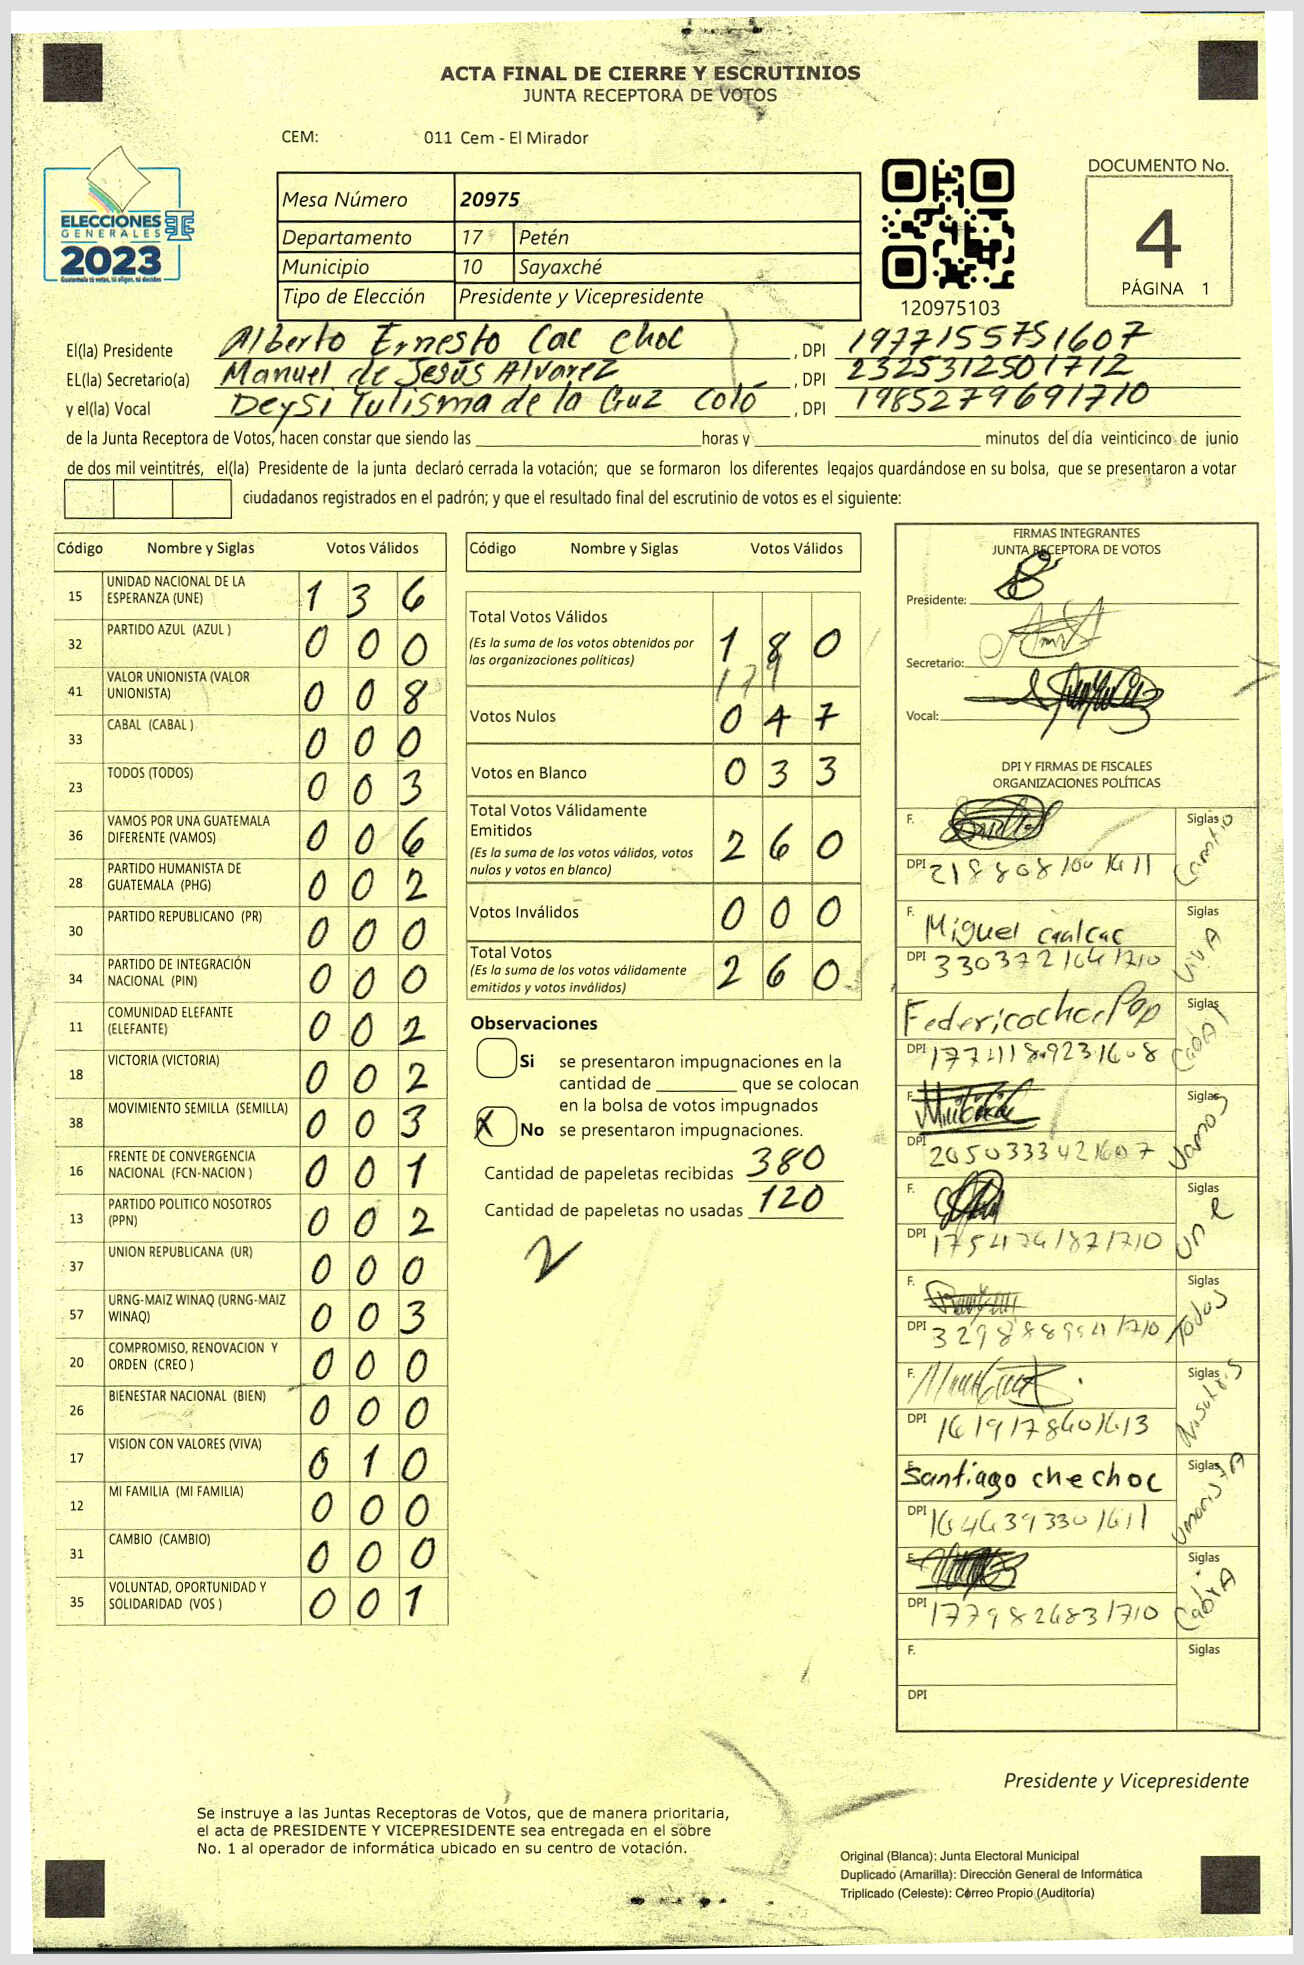 ACTA FINAL DE CIERRE Y ESCRUTINIOS
JUNTA RECEPTORA DE VOTOS
CEM: 011 Cem - El Mirador
ELECCIONES
GENERALES
2023
Mesa Número 20975
Departamento 17 Petén
Municipio 10 Sayaxché
Tipo de Elección Presidente y Vicepresidente
120975103
DOCUMENTO No.
4
PÁGINA 1
El(la) Presidente Alberto Ernesto Cac Choc , DPI 1977155751607
EL(la) Secretario(a) Manuel de Jesús Alvarez , DPI 2325312501712
y el(la) Vocal Deysi Yulisma de la Cruz Coló , DPI 1985279691710
de la Junta Receptora de Votos, hacen constar que siendo las horas y minutos del día veinticinco de junio
de dos mil veintitrés, el(la) Presidente de la junta declaró cerrada la votación; que se formaron los diferentes legajos guardándose en su bolsa, que se presentaron a votar
ciudadanos registrados en el padrón; y que el resultado final del escrutinio de votos es el siguiente:
Código Nombre y Siglas Votos Válidos
15 UNIDAD NACIONAL DE LA ESPERANZA (UNE) 1 3 6
32 PARTIDO AZUL (AZUL ) 0 0 0
41 VALOR UNIONISTA (VALOR UNIONISTA) 0 0 8
33 CABAL (CABAL ) 0 0 0
23 TODOS (TODOS) 0 0 3
36 VAMOS POR UNA GUATEMALA DIFERENTE (VAMOS) 0 0 6
28 PARTIDO HUMANISTA DE GUATEMALA (PHG) 0 0 2
30 PARTIDO REPUBLICANO (PR) 0 0 0
34 PARTIDO DE INTEGRACIÓN NACIONAL (PIN) 0 0 0
11 COMUNIDAD ELEFANTE (ELEFANTE) 0 0 2
18 VICTORIA (VICTORIA) 0 0 2
38 MOVIMIENTO SEMILLA (SEMILLA) 0 0 3
16 FRENTE DE CONVERGENCIA NACIONAL (FCN-NACION ) 0 0 1
13 PARTIDO POLITICO NOSOTROS (PPN) 0 0 2
37 UNION REPUBLICANA (UR) 0 0 0
57 URNG-MAIZ WINAQ (URNG-MAIZ WINAQ) 0 0 3
20 COMPROMISO, RENOVACION Y ORDEN (CREO ) 0 0 0
26 BIENESTAR NACIONAL (BIEN) 0 0 0
17 VISION CON VALORES (VIVA) 0 1 0
12 MI FAMILIA (MI FAMILIA) 0 0 0
31 CAMBIO (CAMBIO) 0 0 0
35 VOLUNTAD, OPORTUNIDAD Y SOLIDARIDAD (VOS ) 0 0 1
Código Nombre y Siglas Votos Válidos
Total Votos Válidos
(Es la suma de los votos obtenidos por las organizaciones políticas) 1 8 0
179
Votos Nulos 0 4 7
Votos en Blanco 0 3 3
Total Votos Válidamente Emitidos
(Es la suma de los votos válidos, votos nulos y votos en blanco) 2 6 0
Votos Inválidos 0 0 0
Total Votos
(Es la suma de los votos válidamente emitidos y votos inválidos) 2 6 0
Observaciones
Si se presentaron impugnaciones en la
cantidad de que se colocan
en la bolsa de votos impugnados
X No se presentaron impugnaciones.
Cantidad de papeletas recibidas 380
Cantidad de papeletas no usadas 120
2
FIRMAS INTEGRANTES
JUNTA RECEPTORA DE VOTOS
Presidente:
Secretario:
Vocal:
DPI Y FIRMAS DE FISCALES
ORGANIZACIONES POLÍTICAS
F. Siglas Cambio
DPI
F. Miguel caalcac Siglas VIVA
DPI 3303721641710
F. Federico choc Pop Siglas
DPI
F. Siglas Vamos
DPI 2050333421607
F. Siglas Une
DPI
F. Siglas Todos
DPI
F. Siglas Nosotros
DPI 1619178601613
F. Santiago che choc Siglas
DPI 1646393301611
F. Siglas
DPI 1779826831710
F. Siglas
DPI
Presidente y Vicepresidente
Se instruye a las Juntas Receptoras de Votos, que de manera prioritaria,
el acta de PRESIDENTE Y VICEPRESIDENTE sea entregada en el sobre
No. 1 al operador de informática ubicado en su centro de votación.
Original (Blanca): Junta Electoral Municipal
Duplicado (Amarilla): Dirección General de Informática
Triplicado (Celeste): Correo Propio (Auditoría)